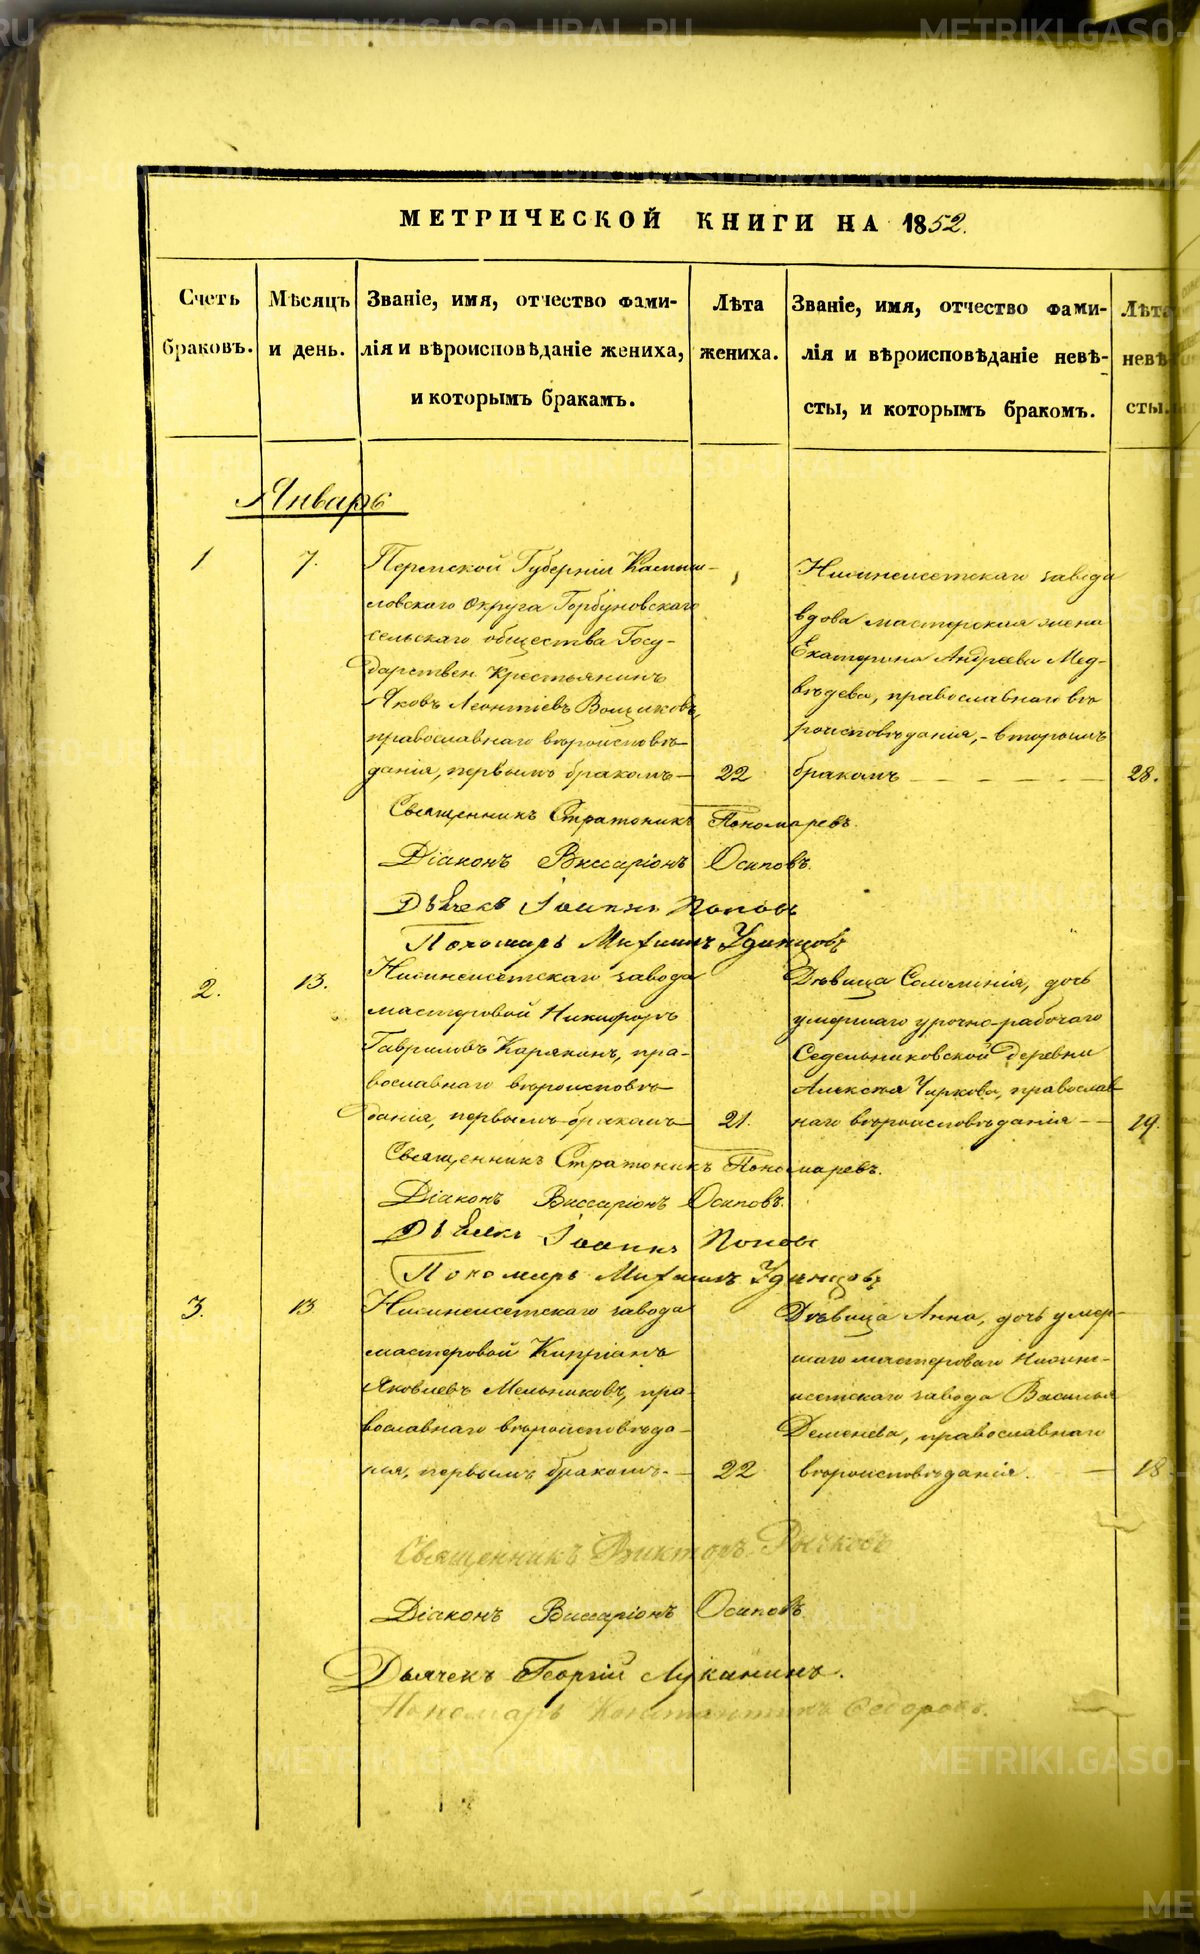 МЕТРИЧЕСКОЙ КНИГИ НА 1852.
Счетъ браковъ.
Мѣсяцъ и день.
Званіе, имя, отчество фами-
лія и вѣроисповѣданіе жениха,
и которымъ бракамъ.
Лѣта
жениха.
Званіе, имя, отчество фами-
лія и вѣроисповѣданіе невѣ-
сты, и которымъ бракомъ.
Лѣта
невѣ-
сты.
Январь
1
7.
Пермской Губерніи Камыш-
ловскаго Округа Горбуновскаго
сельскаго общества Госу-
дарствен Крестьянинъ
Яковъ Леонтіевъ Вощиковъ,
православнаго вѣроисповѣ-
данія, первымъ бракомъ —
22
Нижнеисетскаго завода
вдова мастерская жена
Екатерина Андреева Мед-
вѣдева, православнаго вѣ
роисповѣданія, - вторымъ
бракомъ
28.
Священникъ Стратоникъ Пономаревъ.
Діаконъ Виссаріонъ Осиповъ.
Дьячекъ Іоаннъ Поповъ
Пономарь Михаилъ Удинцовъ
2.
13.
Нижнеисетскаго завода
мастеровой Никифоръ
Гавриловъ Карякинъ, пра-
вославнаго вѣроисповѣ
данія, первымъ бракомъ
21.
Дѣвица Соломонія, дочь
умершаго урочно-рабочаго
Седельниковской деревни
Алексѣя Чиркова, православ
наго вѣроисповѣданія —
19.
Священникъ Стратоникъ Пономаревъ.
Діаконъ Виссаріонъ Осиповъ.
Дьячекъ Іоаннъ Поповъ
Пономарь Михаилъ Удинцовъ
3.
13
Нижнеисетскаго завода
мастеровой Кипріанъ
Яковлевъ Мельниковъ, пра-
вославнаго вѣроисповѣда-
нія, первымъ бракомъ. —
22
Дѣвица Анна, дочь умер-
шаго мастероваго Нижне-
исетскаго завода Василья
Деменева, православнаго
вѣроисповѣданія.
18
Священникъ Викторъ Рычковъ
Діаконъ Виссаріонъ Осиповъ
Дьячекъ Георгій Луканинъ.
Пономарь Константинъ Федоровъ.
METRIKI.GASO-URAL.RU